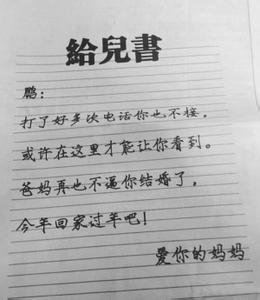 給兒書
鹏：
打了好多次电话你也不接，
或许在这里才能让你看到。
爸妈再也不逼你结婚了，
今年回家过年吧！
爱你的妈妈